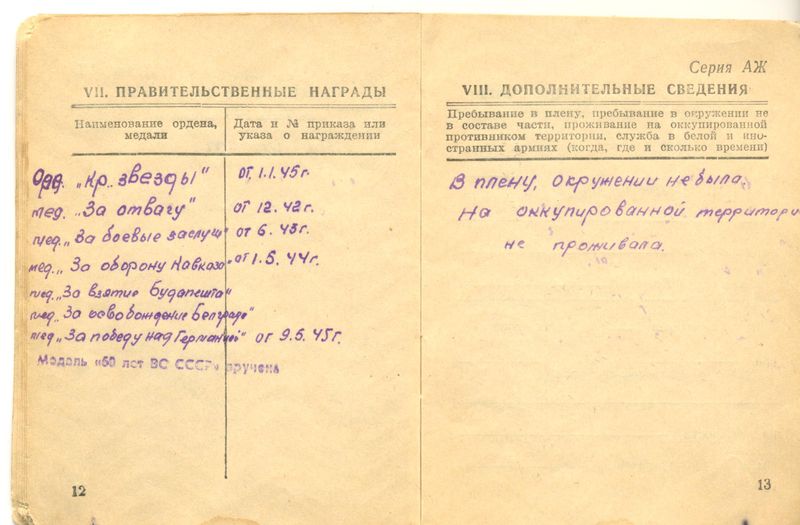 VII. ПРАВИТЕЛЬСТВЕННЫЕ НАГРАДЫ
Наименование ордена, медали
Дата и № приказа или указа о награждении
Орд. „Кр. звезды" от 1.1.45г.
мед. „За отвагу" от 12.42г.
мед. „За боевые заслуги" от 6.43г.
мед. „За оборону Кавказа" от 1.5.44г.
мед. „За взятие Будапешта"
мед. „За освобождение Белграда"
мед. „За победу над Германией" от 9.5.45г.
Медаль «50 лет ВС СССР» вручена
12
Серия АЖ
VIII. ДОПОЛНИТЕЛЬНЫЕ СВЕДЕНИЯ
Пребывание в плену, пребывание в окружении не
в составе части, проживание на оккупированной
противником территории, служба в белой и ино-
странных армиях (когда, где и сколько времени)
В плену, окружении не была.
На оккупированной территори
не проживала.
13